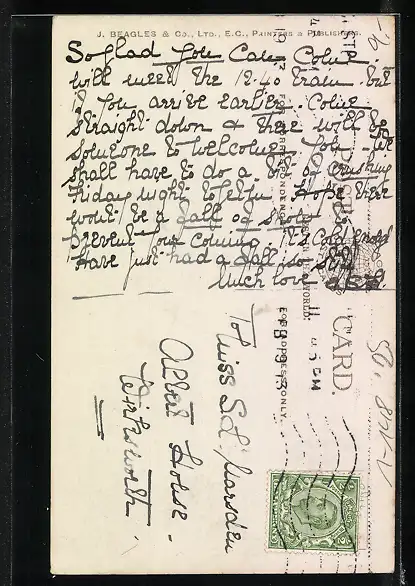 J. BEAGLES & Co., LTD., E.C., PRINTERS & PUBLISHERS.
So glad you can come.
will meet the 12.40 train. but
if you arrive earlier. Come
straight down & there will be
someone to welcome you. we
shall have to do a bit of crushing
Friday night
hope there
wont be a fall of snow to
prevent your coming. it's cold enough
Have just had a fall so
Much love
POST CARD.
FOR CORRESPONDENCE
FOR ADDRESS ONLY.
To Miss S. A. Marsden
Albert House.
Wirksworth